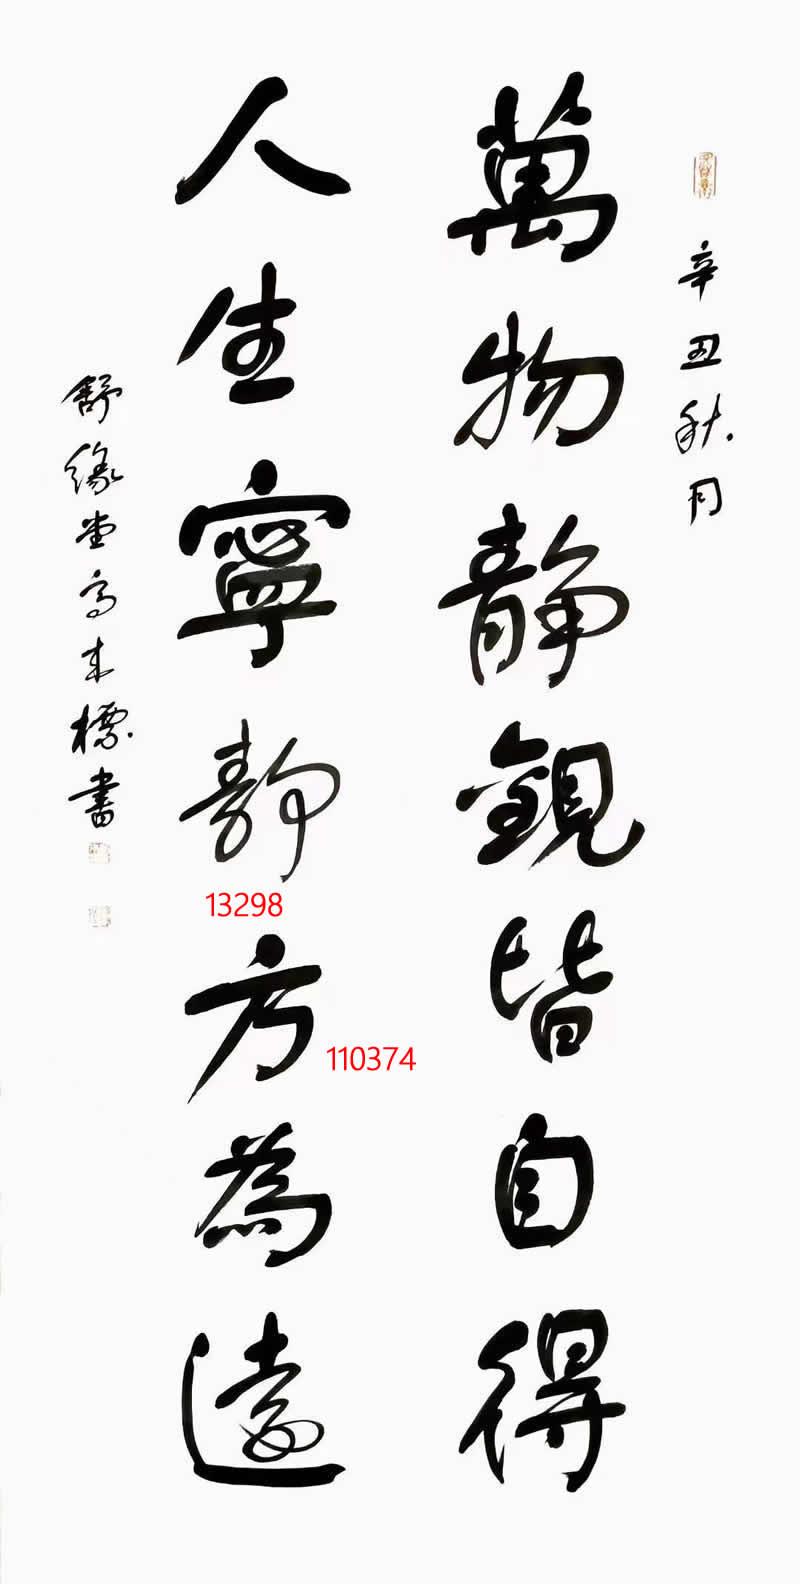 辛丑秋月
萬物静觀皆自得
人生寧静方為遠
舒緣堂高來標書
13298
110374